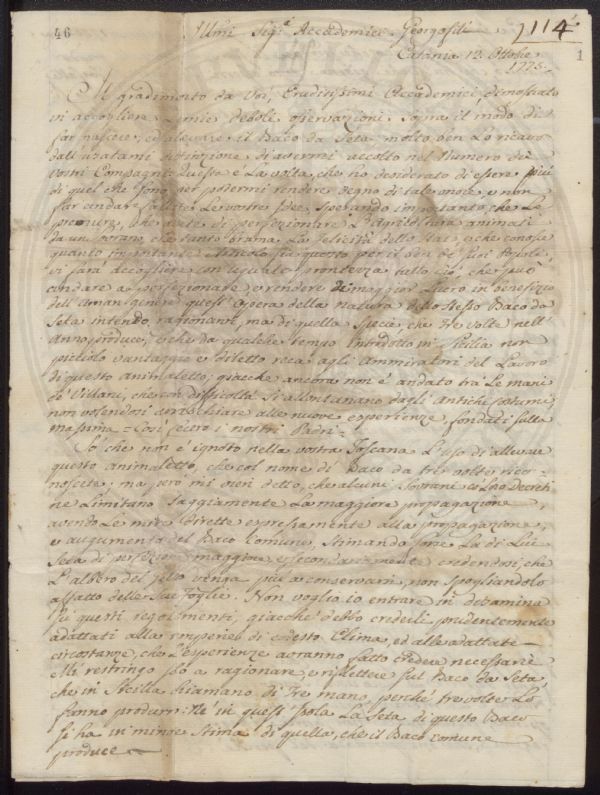 46 Illmi Sigri Accademici Georgofili 114
Catania 12 Ottobre 1
1775.
Il gradimento da Voi, Eruditissimi Accademici, dimostrato
in accogliere le mie deboli osservazioni sopra il modo di
far nascere, ed allevare il Baco da Seta molto ben lo ricavo
dall'usatami attenzione di avermi accolto nel Numero de'
vostri Compagni. Questa è la volta, che ho desiderato di essere più
di quel che sono, per potermi rendere degno di tale onore, e non
far andare fallite le vostre Idee, sperando importanto, che le
premure, che avete di perfezionare l'Agricoltura animati
da un Sovrano, che tanto brama la felicità dello Stato, e che conosce
quanto importante sia questo per il ben de' suoi Popoli,
vi farà accogliere con uguale prontezza tutto ciò, che può
andare a perfezionare, e rendere di maggior lucro in benefizio
dell'uman genere quest'Opera della natura dello stesso Baco da
Seta intendo ragionarvi, ma di quella specie, che tre volte nell'
Anno produce, e che da qualche tempo introdotto in Sicilia non
picciolo vantaggio e diletto reca agli Ammiratori del Lavoro
di questo animaletto; giacchè ancora non è andato tra le mani
de' Villani, che con difficoltà si allontanano dagli Antichi costumi,
non volendosi arrischiare alle nuove esperienze, fondati sulla
massima = Così fecero i nostri Padri =
So che non è ignoto nella vostra Toscana l'uso di allevare
questo animaletto, che col nome di Baco da tre volte rico-
noscete; ma però mi vien detto, che alcuni Sovrani co' loro Decreti
ne limitano saggiamente la maggiore propagazione,
avendo le mire dirette espressamente alla propagazione,
e augumento del Baco comune, stimando forse la di lui
Seta di perfezione maggiore, e secondariamente credendosi, che
l'albero del gelso venga più a conservarsi, non spogliandolo
affatto delle sue foglie. Non voglio io entrare in disamina
su questi regolamenti, giacchè debbo crederli prudentemente
adattati alla temperie di codesto Clima, ed alle adattate
circostanze, che l'esperienze avranno fatto credere necessarie
Mi restringo solo a ragionare, e riflettere sul Baco da Seta,
che in Sicilia chiamano di tre mano, perchè tre volte lo
fanno produrre: Nè in quest'Isola la Seta di questo Baco
si ha in minor stima di quella, che il Baco comune
produce